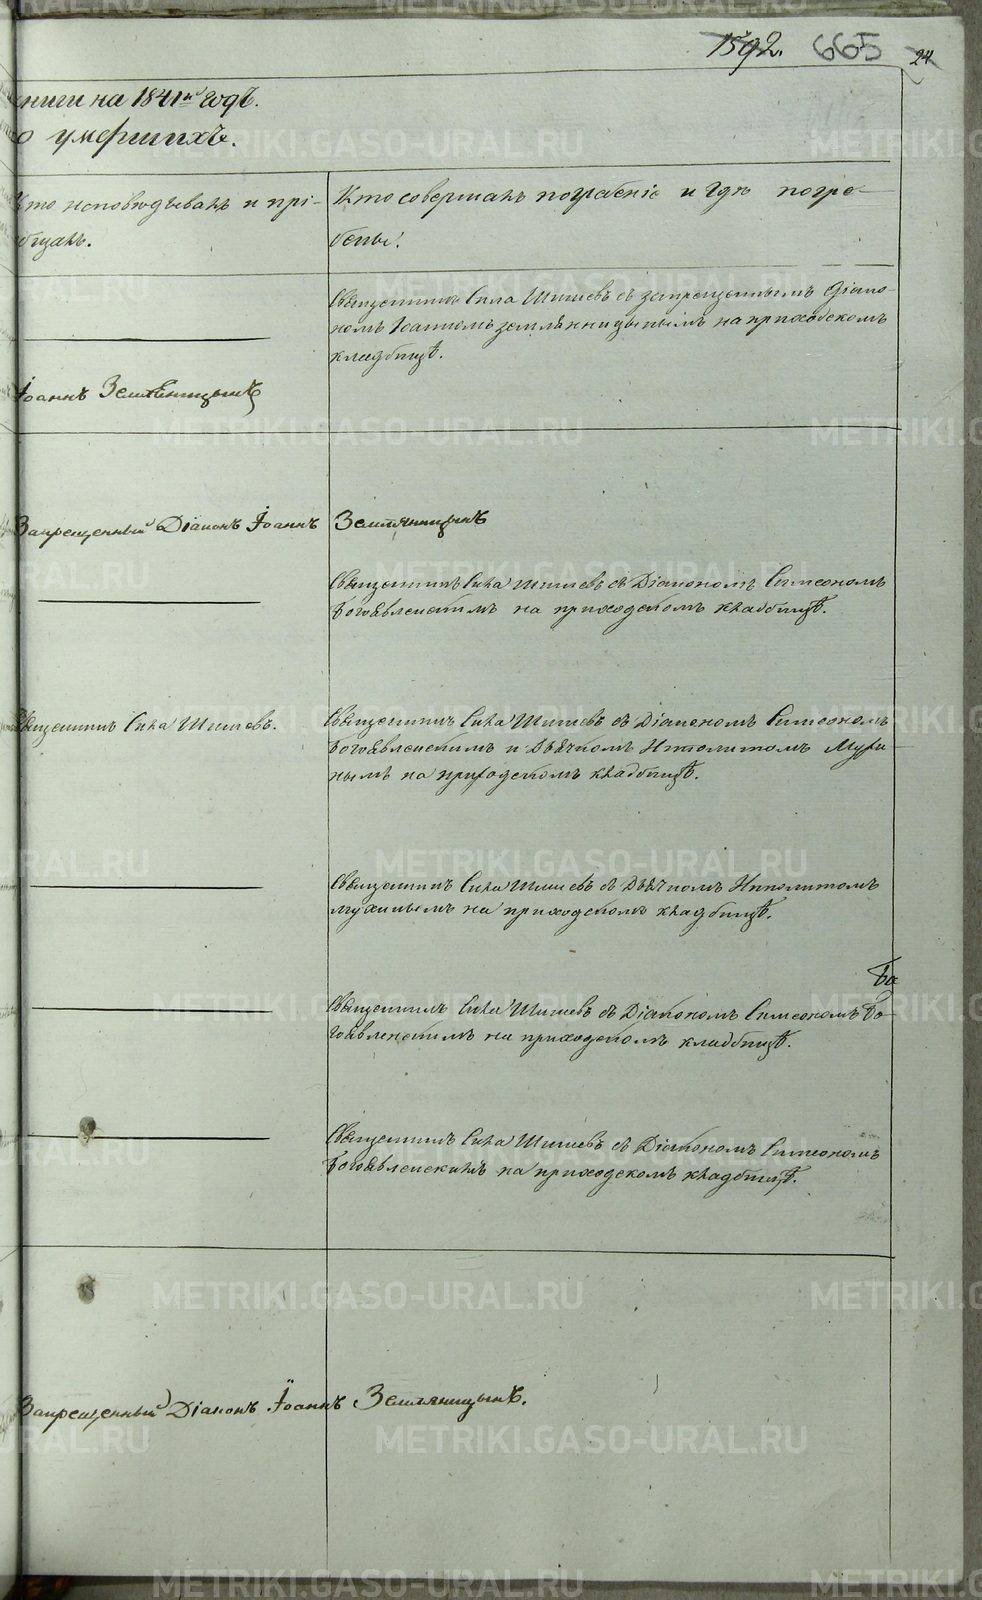 1592. 665 24
книги на 1841й годъ.
о умершихъ.
Кто исповѣдывалъ и прі-
общалъ.
Кто совершалъ погребеніе и гдѣ погре-
бены.
Священникъ Сила Шишевъ съ запрещеннымъ діако-
номъ Іоанномъ Землянницынымъ на приходскомъ
кладбищѣ.
Іоаннъ Землянницынъ
Запрещенный Діаконъ Іоаннъ Землянницынъ
Священникъ Сила Шишевъ съ Діакономъ Симеономъ
Богоявленскимъ на приходскомъ кладбищѣ.
Священникъ Сила Шишевъ.
Священникъ Сила Шишевъ съ Діакономъ Симеономъ
Богоявленскимъ и Дьячкомъ Ипполитомъ Мухи-
нымъ на приходскомъ кладбищѣ.
Священникъ Сила Шишевъ съ Дьячкомъ Ипполитомъ
Мухинымъ на приходскомъ кладбищѣ.
Бо
Священникъ Сила Шишевъ съ Діакономъ Симеономъ Бо-
гоявленскимъ на приходскомъ кладбищѣ.
Священникъ Сила Шишевъ съ Діакономъ Симеономъ
Богоявленскимъ на приходскомъ кладбищѣ.
Запрещенный Діаконъ Іоаннъ Землянницынъ.
METRIKI.GASO-URAL.RU